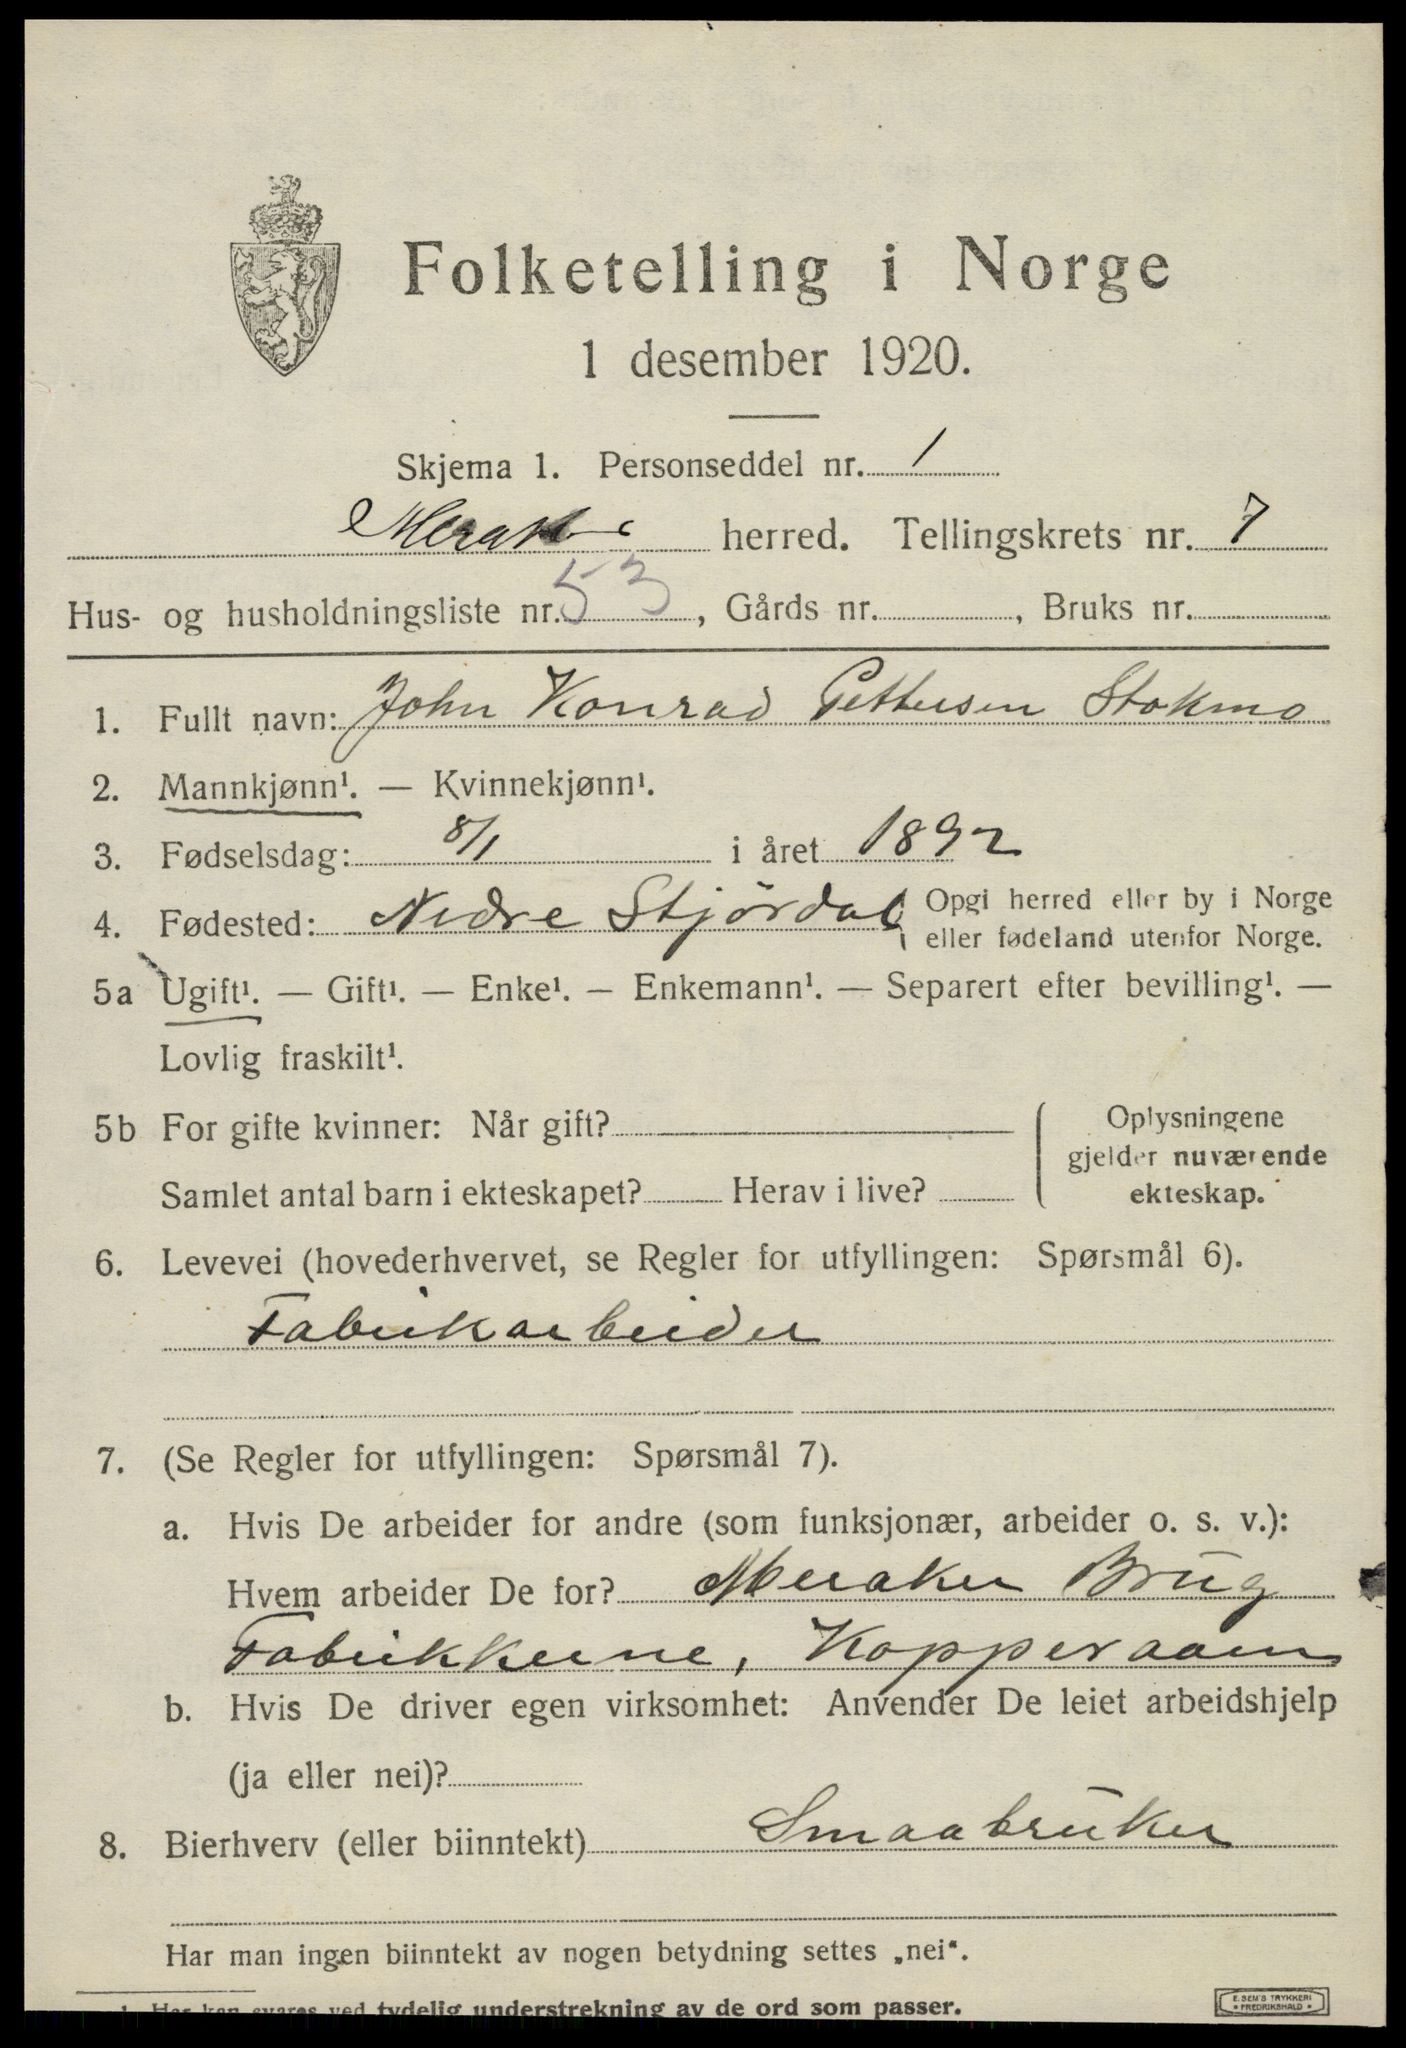 Folketelling i Norge
1 desember 1920.
Skjema 1. Personseddel nr. 1
herred. Tellingskrets nr. 7
Hus- og husholdningsliste nr. 53, Gårds nr. , Bruks nr.
1. Fullt navn: John Konrad Pettersen Stokmo
2. Mannkjønn¹. — Kvinnekjønn¹.
3. Fødselsdag: 8/1 i året 1892
4. Fødested: Nedre Stjørdal { Opgi herred eller by i Norge
eller fødeland utenfor Norge.
5a Ugift¹. — Gift¹. — Enke¹. — Enkemann¹. — Separert efter bevilling¹. —
Lovlig fraskilt¹.
5b For gifte kvinner: Når gift?
Samlet antal barn i ekteskapet? Herav i live?
Oplysningene
gjelder nuværende
ekteskap.
6. Levevei (hovederhvervet, se Regler for utfyllingen: Spørsmål 6).
Fabrikarbeider
7. (Se Regler for utfyllingen: Spørsmål 7).
a. Hvis De arbeider for andre (som funksjonær, arbeider o. s. v.):
Hvem arbeider De for? Meraker Brug
Fabrikkerne, Kopperaaen
b. Hvis De driver egen virksomhet: Anvender De leiet arbeidshjelp
(ja eller nei)?
8. Bierhverv (eller biinntekt) Smaabruker
Har man ingen biinntekt av nogen betydning settes „nei“.
1 Her kan svares ved tydelig understrekning av de ord som passer.
E. SEM'S TRYKKERI
FREDRIKSHALD